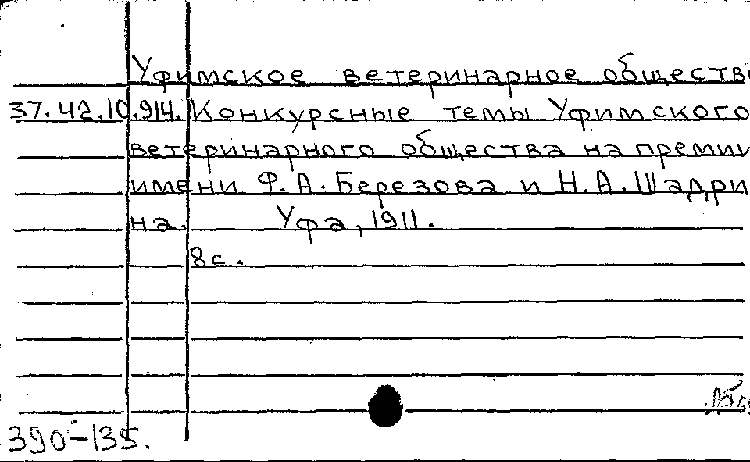 Уфимское ветеринарное обществ
37.42.10.914. Конкурсные темы Уфимского
ветеринарного общества на преми
имени Ф.А.Березова и Н.А.Шадри
на. Уфа, 1911.
8с.
390-135.